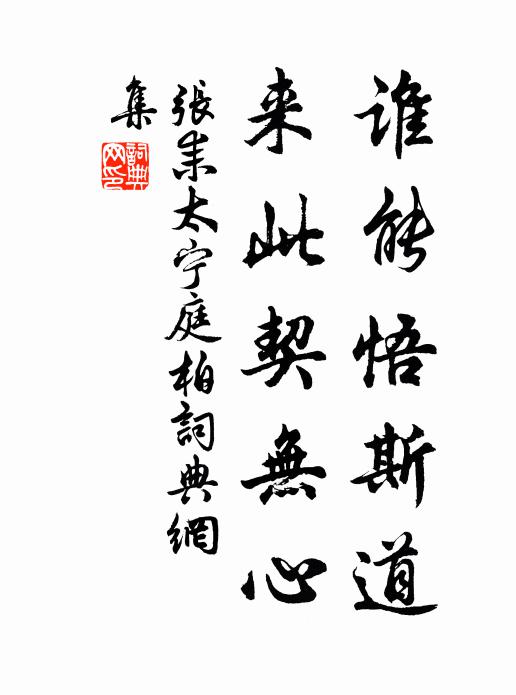 誰能悟斯道
来此契無心
張耒太宁庭柏詞典網
集
詞典网印